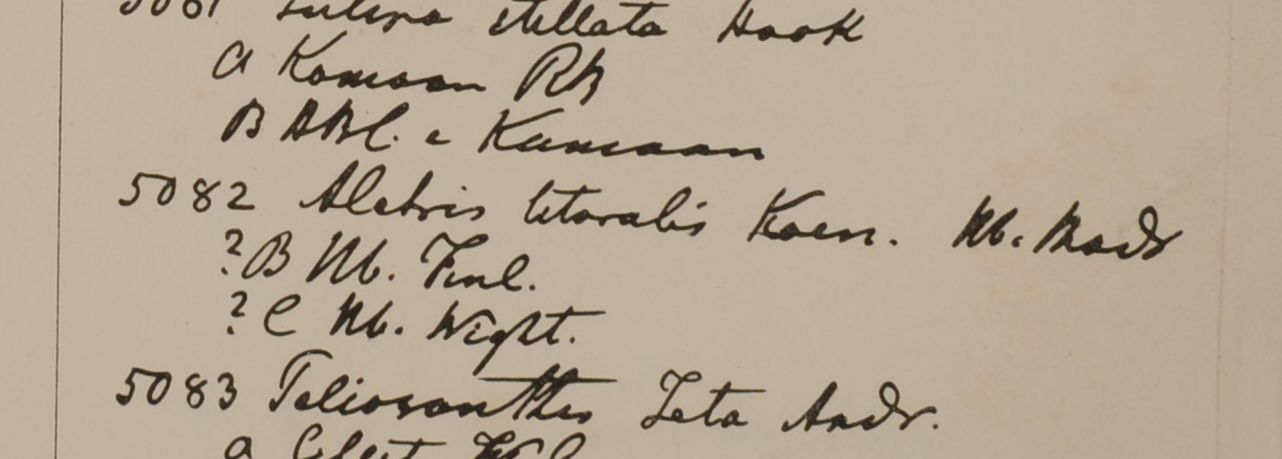 5081 stellata Hook
a Kamaon RB
B HBC. e Kamaon
5082 Aletris litoralis Koen. Hb. Madr
? B Hb. Finl.
? C Hb. Wight.
5083 Peliosanthes Teta Andr.
a